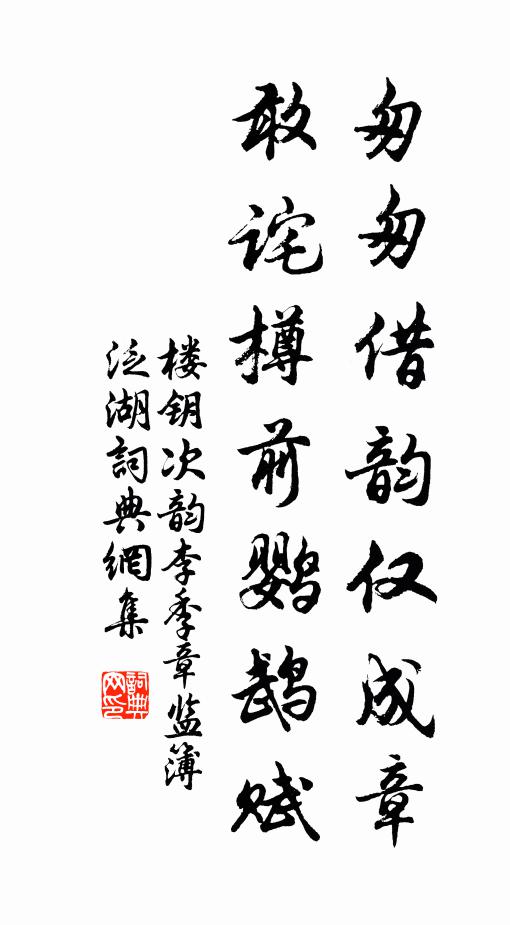 匆匆借韵仅成章
敢诧樽前鹦鹉赋
楼钥次韵李季章监簿
泛湖詞典網集
詞典
网印